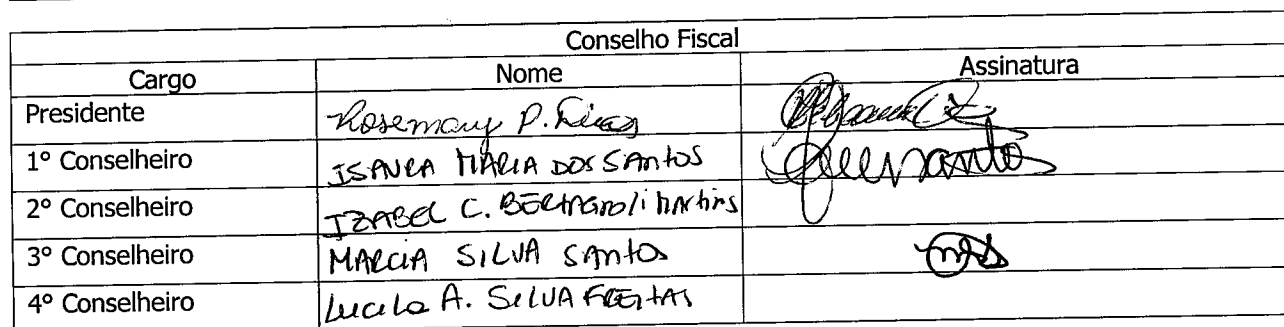 Conselho Fiscal
Cargo Nome Assinatura
Presidente Rosemary P.
1º Conselheiro ISAURA MARIA DOS SANTOS
2º Conselheiro IZABEL C. BERTAGNOLI MARTINS
3º Conselheiro MARCIA SILVA SANTOS
4º Conselheiro Lucila A. SILVA FREITAS